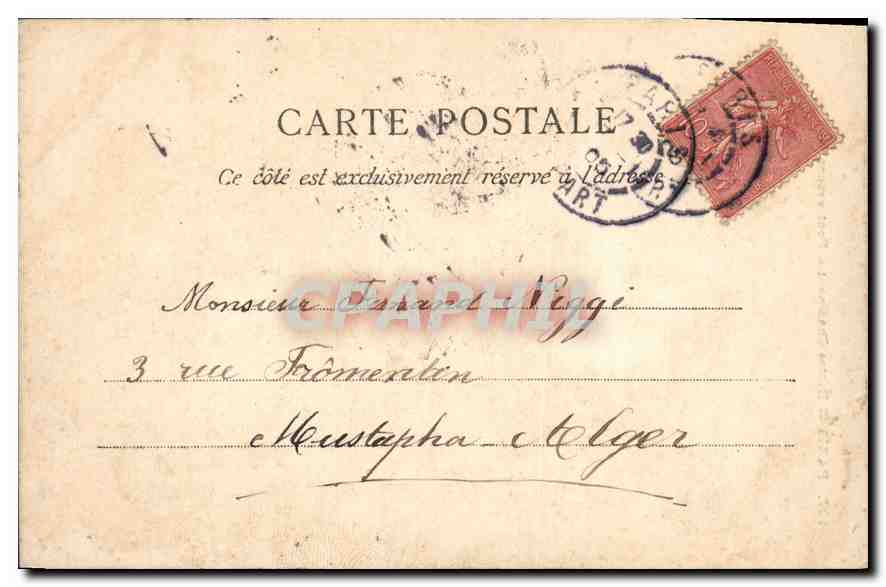 CARTE POSTALE
Ce côté est exclusivement réservé à l'adresse
PARIS
17 30
ART
Monsieur Fernand Niggi
3 rue Fromentin
Mustapha - Alger
CPAPHIL